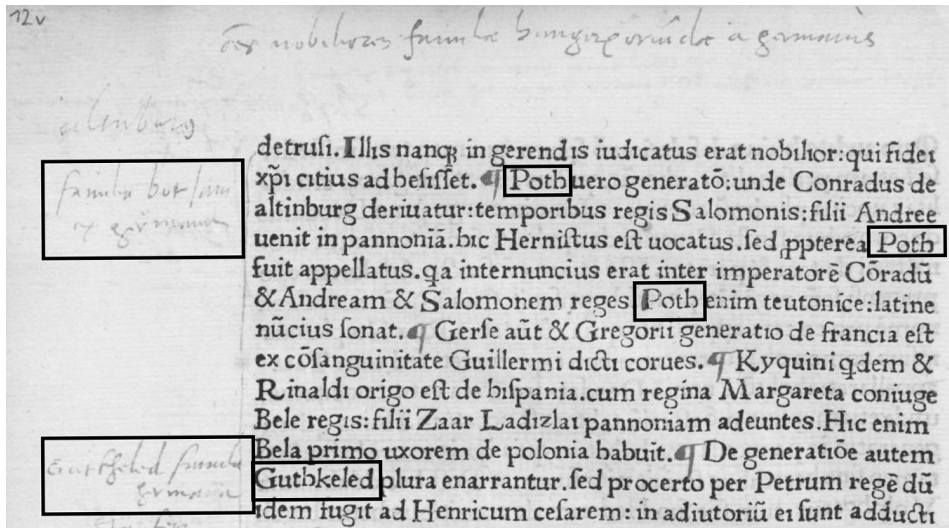 12v
familia bot
ex germania
detrusi. Illis nanq̃ in gerendis iudicatus erat nobilior: qui fidei
xp̄i citius ad hesisset. ¶ Poth uero generatō: unde Conradus de
altinburg deriuatur: temporibus regis Salomonis: filii Andree
uenit in pannoniā. hic Hernistus est uocatus. sed ꝓpterea Poth
fuit appellatus. qa internuncius erat inter imperatorē Cōradū
& Andream & Salomonem reges. Poth enim teutonice: latine
nūcius sonat. ¶ Gerse aūt & Gregorii generatio de francia est
ex cōsanguinitate Guillermi dicti corues. ¶ Kyquini qdem &
Rinaldi origo est de hispania. cum regina Margareta coniuge
Bele regis: filii Zaar Ladizlai pannoniam adeuntes. Hic enim
Bela primo uxorem de polonia habuit. ¶ De generatiōe autem
Guthkeled plura enarrantur. sed procerto per Petrum regē dū
idem fugit ad Henricum cesarem: in adiutoriū ei sunt adducti
Gutkeled familia
germana